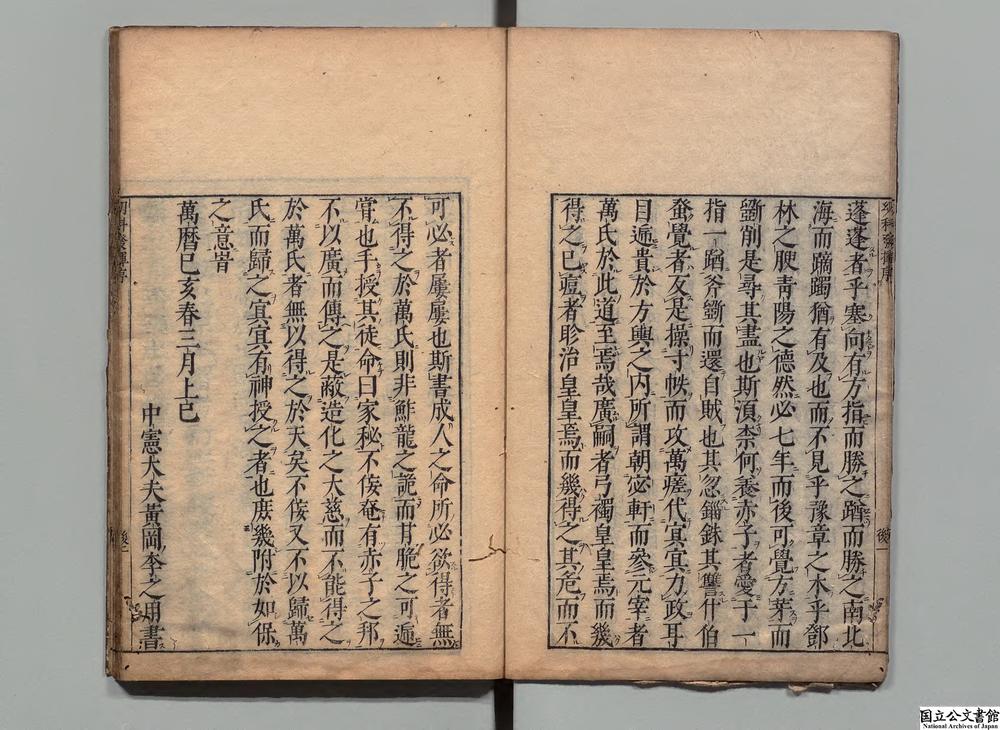 蓬蓬者乎塞向有方指而勝之蹈而勝之南北
海而蹢躅猶有及也而不見乎豫章之木乎鄧
林之腴靑陽之德然必七年而後可覺方芽而
劚削是尋其盡也斯湏柰何養赤子者愛于一
指一蹈斧劚而還自賊也其忽錙銖其讐什伯
蚤覺者反是操寸帙而攻萬瘥代冥冥力政耳
目遍貴於方輿之内所謂朝宓軒而參元宰者
萬氏於此道至焉哉廣嗣者弓襡皇皇焉而幾
得之已痘者昣治皇皇焉而幾得之其危而不
可必者屢屢也斯書成人之命所必欲得者無
不得之於萬氏則非鮓龍之詭而甘脆之可遍
嘗也手授其徒命曰家秘不侫奄有赤子之邦
不以廣而傳之是蔽造化之大慈而不能得之
於萬氏者無以得之於天矣不侫又不以歸萬
氏而歸之冥冥有神授之者也庻幾附於如保
之意旹
萬曆巳亥春三月上巳
中憲大夫黃岡李之用書
後一
後二
国立公文書館
National Archives of Japan